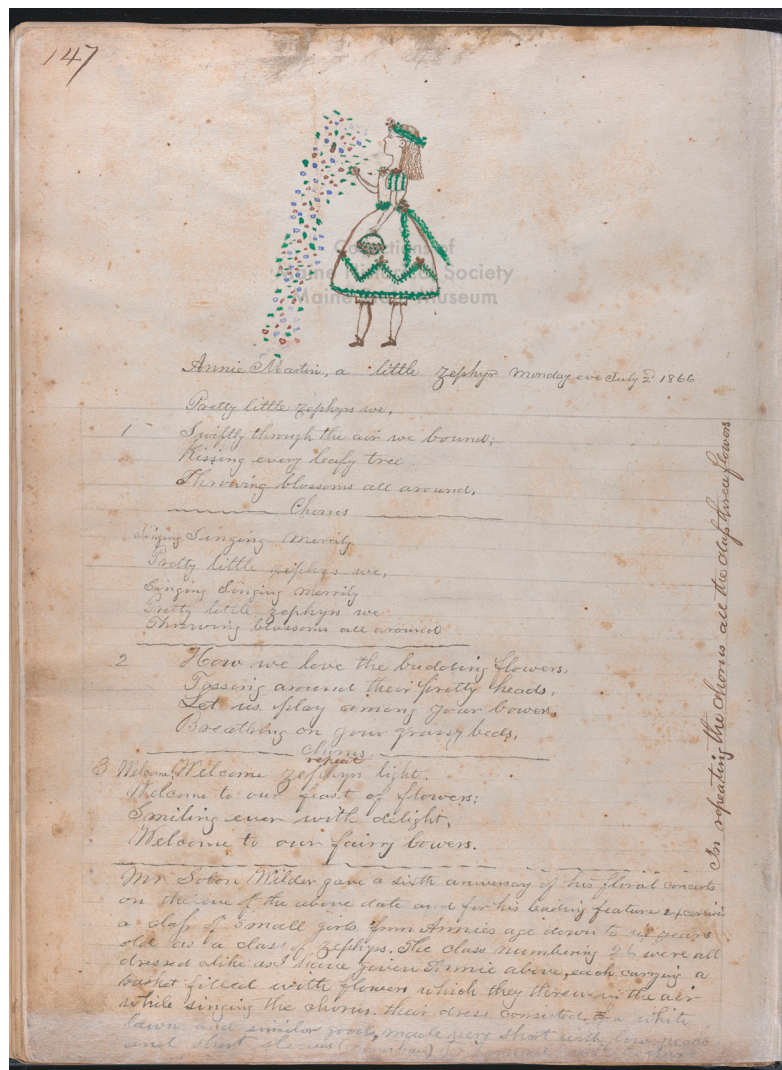 147
Collections of
Maine Historical Society
Maine Museum
Annie Martin, a little zephyr Monday eve July 2d 1866
Pretty little zephyrs we,
1 Swiftly through the air we bound;
Kissing every leafy tree.
Throwing blossoms all around,
Chorus
Singing Singing Merrily
Pretty little zephyrs we,
Singing Singing merrily
Pretty little zephyrs we
Throwing blossoms all around
2 How we love the budding flowers,
Tossing around their pretty heads,
Let us play among your bowers,
Breathing on your grassy beds,
Chorus
repeat
3 Welcome, Welcome zephyrs light.
Welcome to our feast of flowers;
Smiling ever with delight,
Welcome to our fairy bowers.
In repeating the chorus all the class threw flowers
Mr Solon Wilder gave a sixth aniversary of his floral concerts
on the eve of the above date and for his leading feature
a class of small girls from Annies age down to six years
old as a class of zephyrs. The class numbering 26 were all
dressed alike as I have given Annie above, each carrying a
basket filled with flowers which they threw in the air
while singing the chorus. their dress consisted, in white
lawn and similar goods, made very short with low necks
and short sleeves